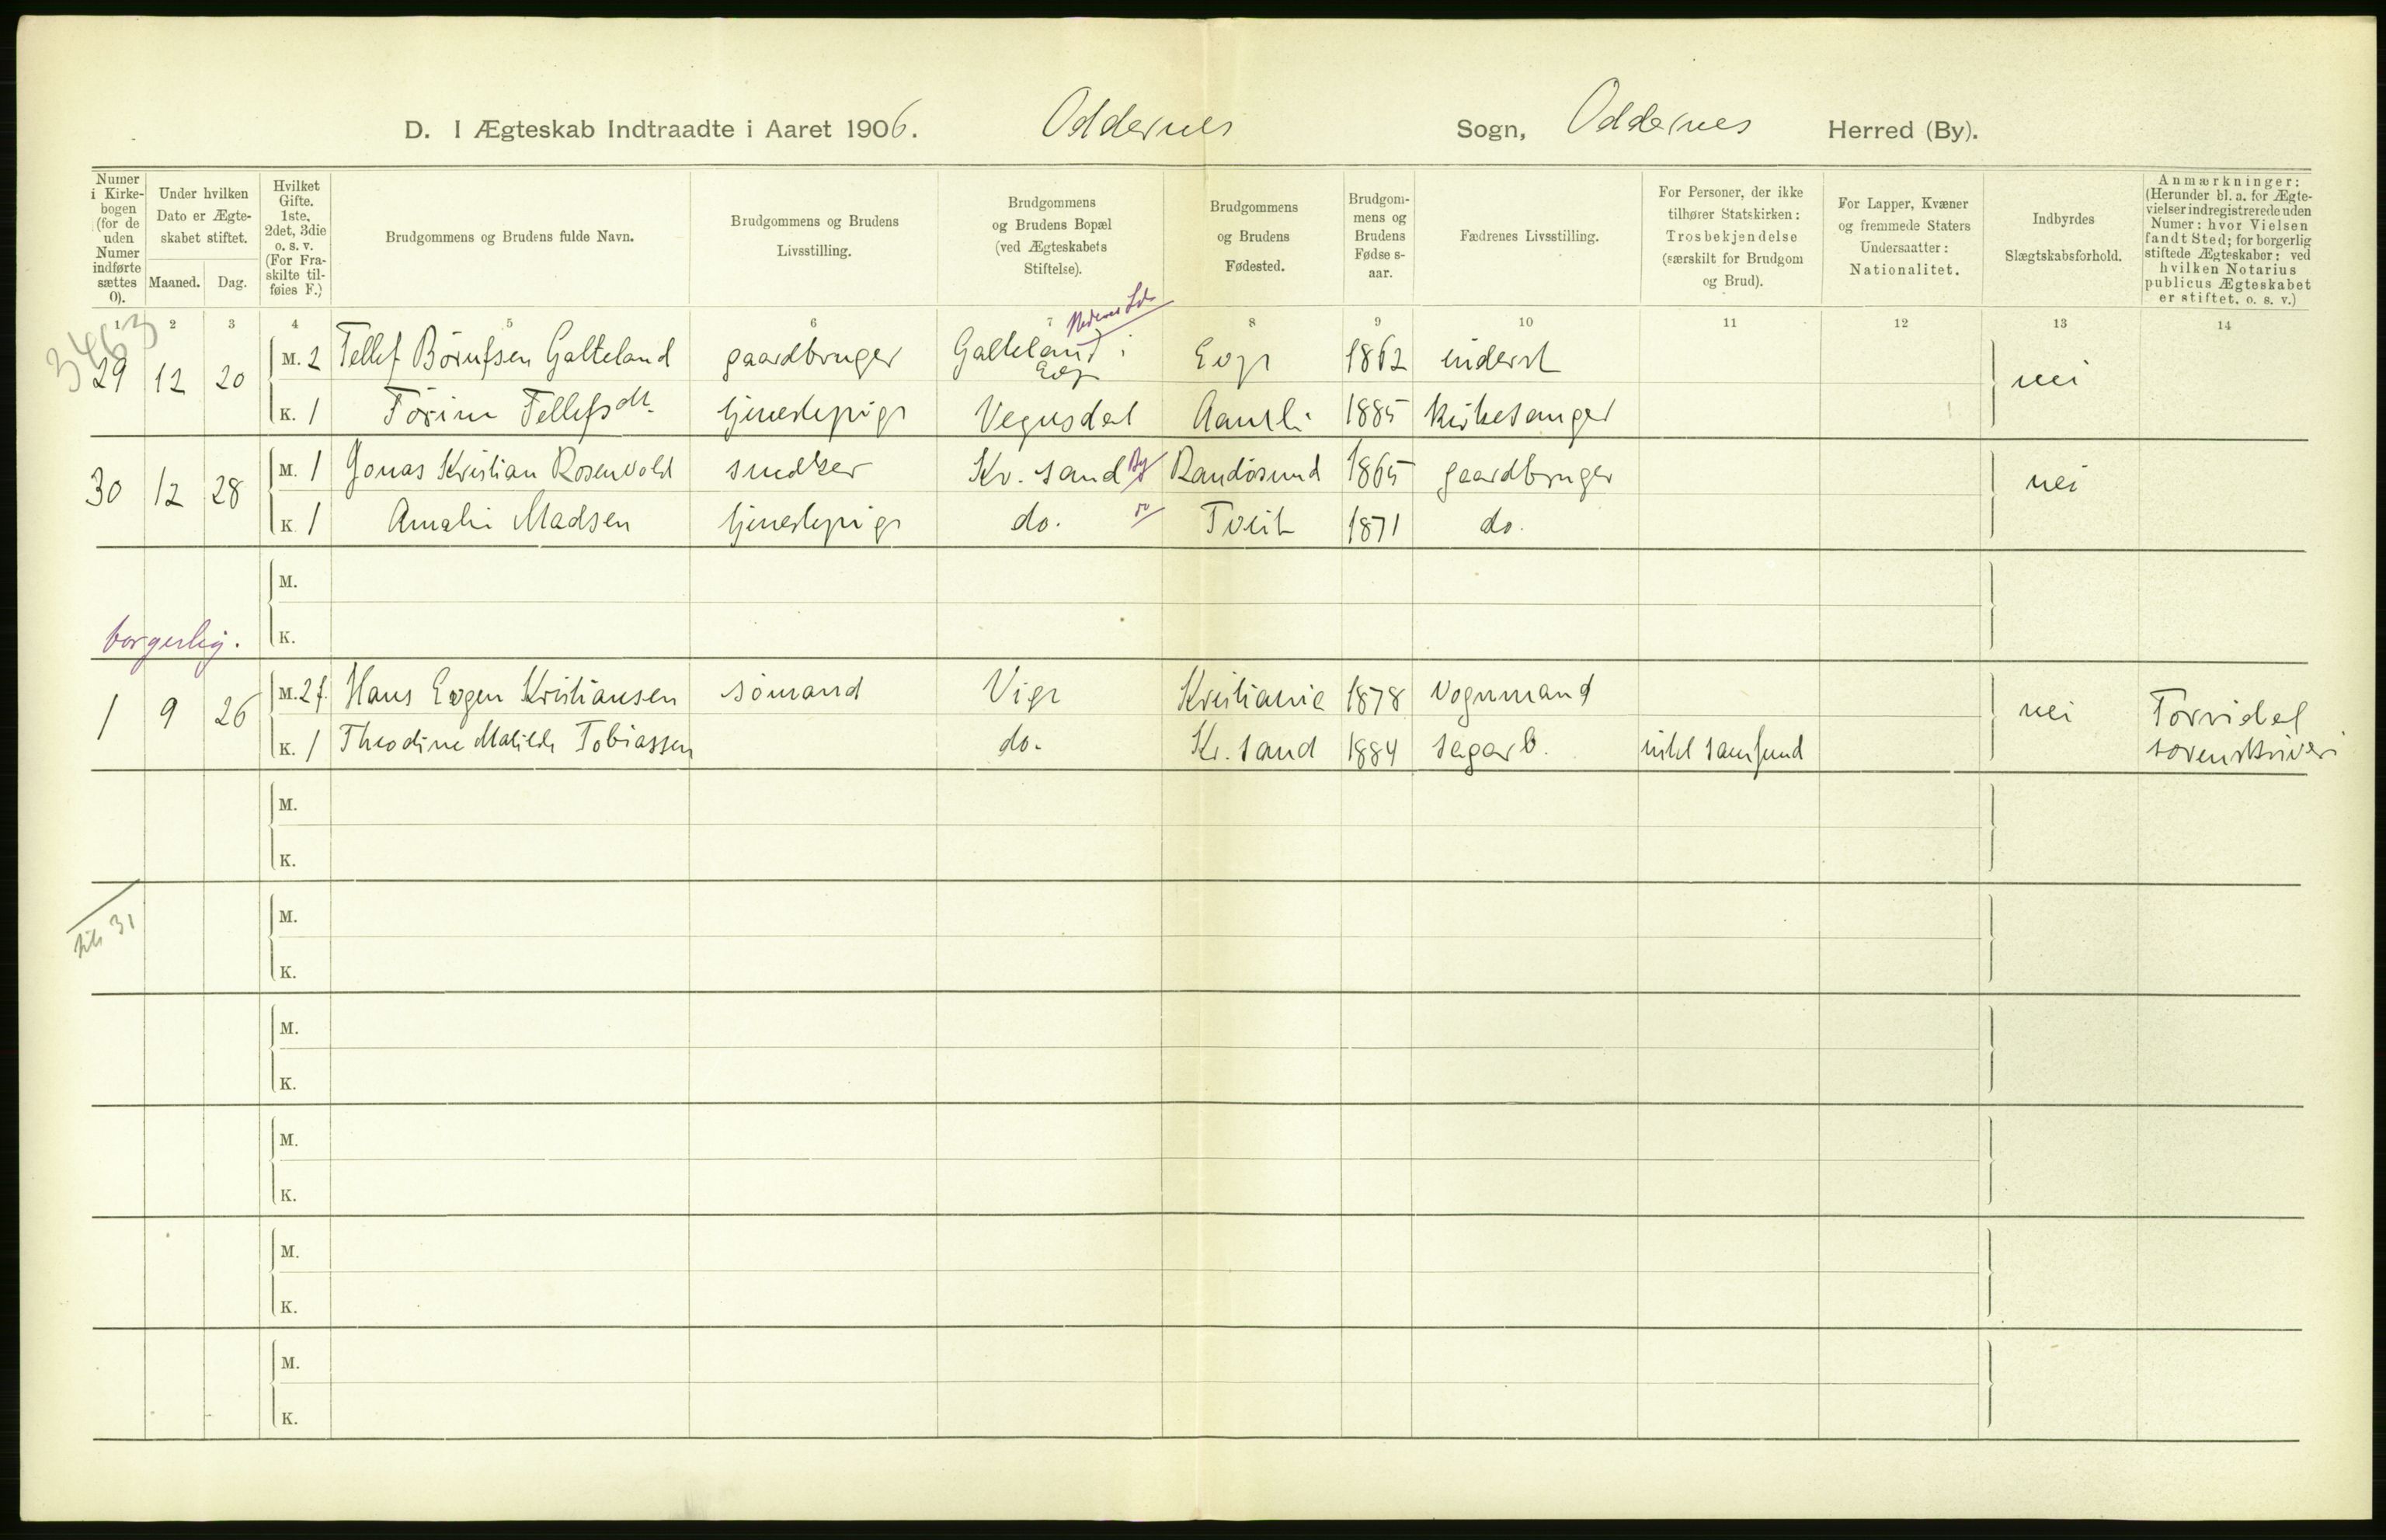 D. I Ægteskab Indtraadte i Aaret 1906. Oddernes Sogn, Oddernes Herred (By).
Numer i Kirkebogen (for de uden Numer indførte sættes 0).
Under hvilken Dato er Ægteskabet stiftet.
Maaned. Dag.
Hvilket Gifte. 1ste, 2det, 3die o. s. v. (For Fraskilte tilføies F.)
Brudgommens og Brudens fulde Navn.
Brudgommens og Brudens Livsstilling.
Brudgommens og Brudens Bopæl (ved Ægteskabets Stiftelse).
Brudgommens og Brudens Fødested.
Brudgommens og Brudens Fødselsaar.
Fædrenes Livsstilling.
For Personer, der ikke tilhører Statskirken: Trosbekjendelse (særskilt for Brudgom og Brud).
For Lapper, Kvæner og fremmede Staters Undersaatter: Nationalitet.
Indbyrdes Slægtskabsforhold.
Anmærkninger: (Herunder bl. a. for Ægtevielser indregistrerede uden Numer: hvor Vielsen fandt Sted; for borgerlig stiftede Ægteskaber: ved hvilken Notarius publicus Ægteskabet er stiftet. o. s. v.)
1 2 3 4 5 6 7 8 9 10 11 12 13 14
3463
29 12 20 M. 2 Tellef Börufsen Galteland gaardbruger Galteland i Evje Evje 1862 inderst nei
K. 1 Törine Tellefsdt. tjenestepige Vegusdal Aamli 1885 kirkesanger
30 12 28 M. 1 Jonas Kristian Rosenvold snedker Kr. sand By Randösund 1865 gaardbruger nei
K 1 Amalie Madsen tjenestepige do. do Tveit 1871 do.
M.
borgerlig. K.
1 9 26 M. 2 f. Hans Evgen Kristiansen sömand Vige Kristiania 1878 vognmand nei Torridal
K. 1 Theodine Matilde Tobiassen do. Kr. sand 1884 sagarb. intet samfund sorenskriveri
M.
K.
M.
31
K.
M.
K.
M.
K.
M.
K.
M.
K.